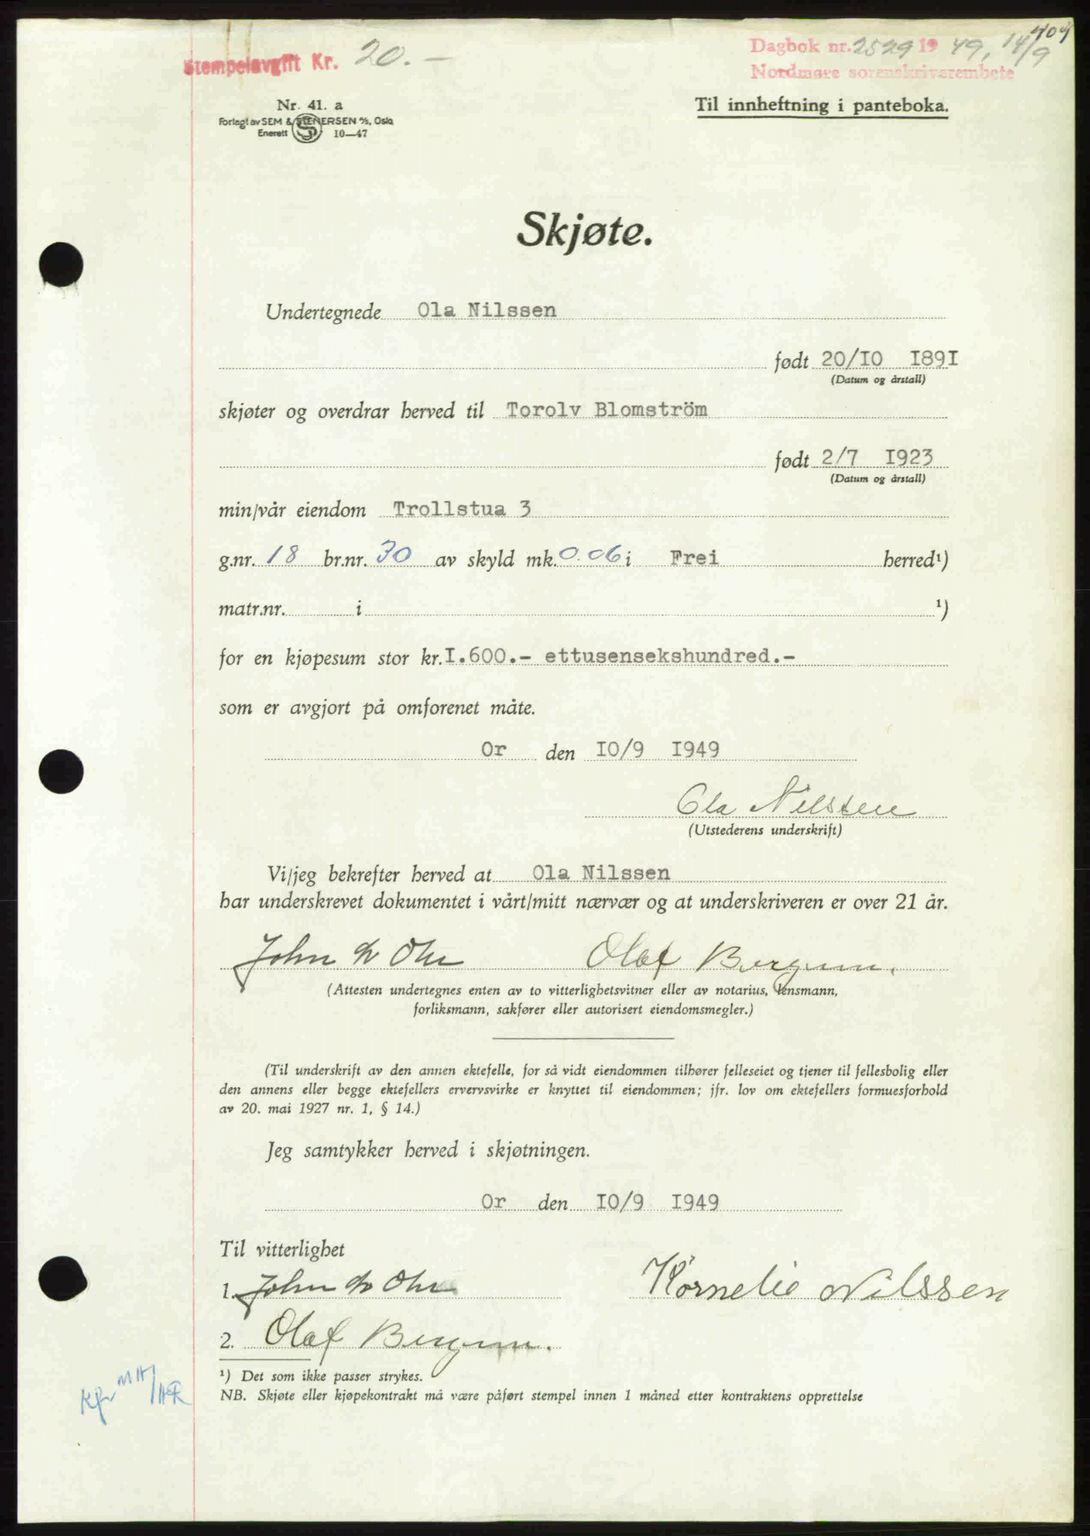 404
Stempelavgift Kr. 20.-
Dagbok nr. 2529 19 49, 14/9
Nordmøre sorenskriverembete
Nr. 41. a
Forlagt av SEM & STENERSEN A/S, Oslo
Enerett S 10—47
Til innheftning i panteboka.
Skjøte.
Undertegnede Ola Nilssen
født 20/IO I89I
(Datum og årstall)
skjøter og overdrar herved til Torolv Blomström
født 2/7 I923
(Datum og årstall)
min/vår eiendom Trollstua 3
g.nr. 18 br.nr. 30 av skyld mk. 0.06 i Frei herred¹)
matr.nr. i ¹)
for en kjøpesum stor kr. I.600.- ettusensekshundred.-
som er avgjort på omforenet måte.
Or den IO/9 I949
Ola Nilssen
(Utstederens underskrift)
Vi/jeg bekrefter herved at Ola Nilssen
har underskrevet dokumentet i vårt/mitt nærvær og at underskriveren er over 21 år.
John Ohr Olaf Bergum.
(Attesten undertegnes enten av to vitterlighetsvitner eller av notarius, lensmann,
forliksmann, sakfører eller autorisert eiendomsmegler.)
(Til underskrift av den annen ektefelle, for så vidt eiendommen tilhører felleseiet og tjener til fellesbolig eller
den annens eller begge ektefellers ervervsvirke er knyttet til eiendommen; jfr. lov om ektefellers formuesforhold
av 20. mai 1927 nr. 1, § 14.)
Jeg samtykker herved i skjøtningen.
Or den IO/9 I949
Til vitterlighet
1. John Ohr Kornelie Nilssen
2. Olaf Bergum.
¹) Det som ikke passer strykes.
NB. Skjøte eller kjøpekontrakt må være påført stempel innen 1 måned etter kontraktens opprettelse